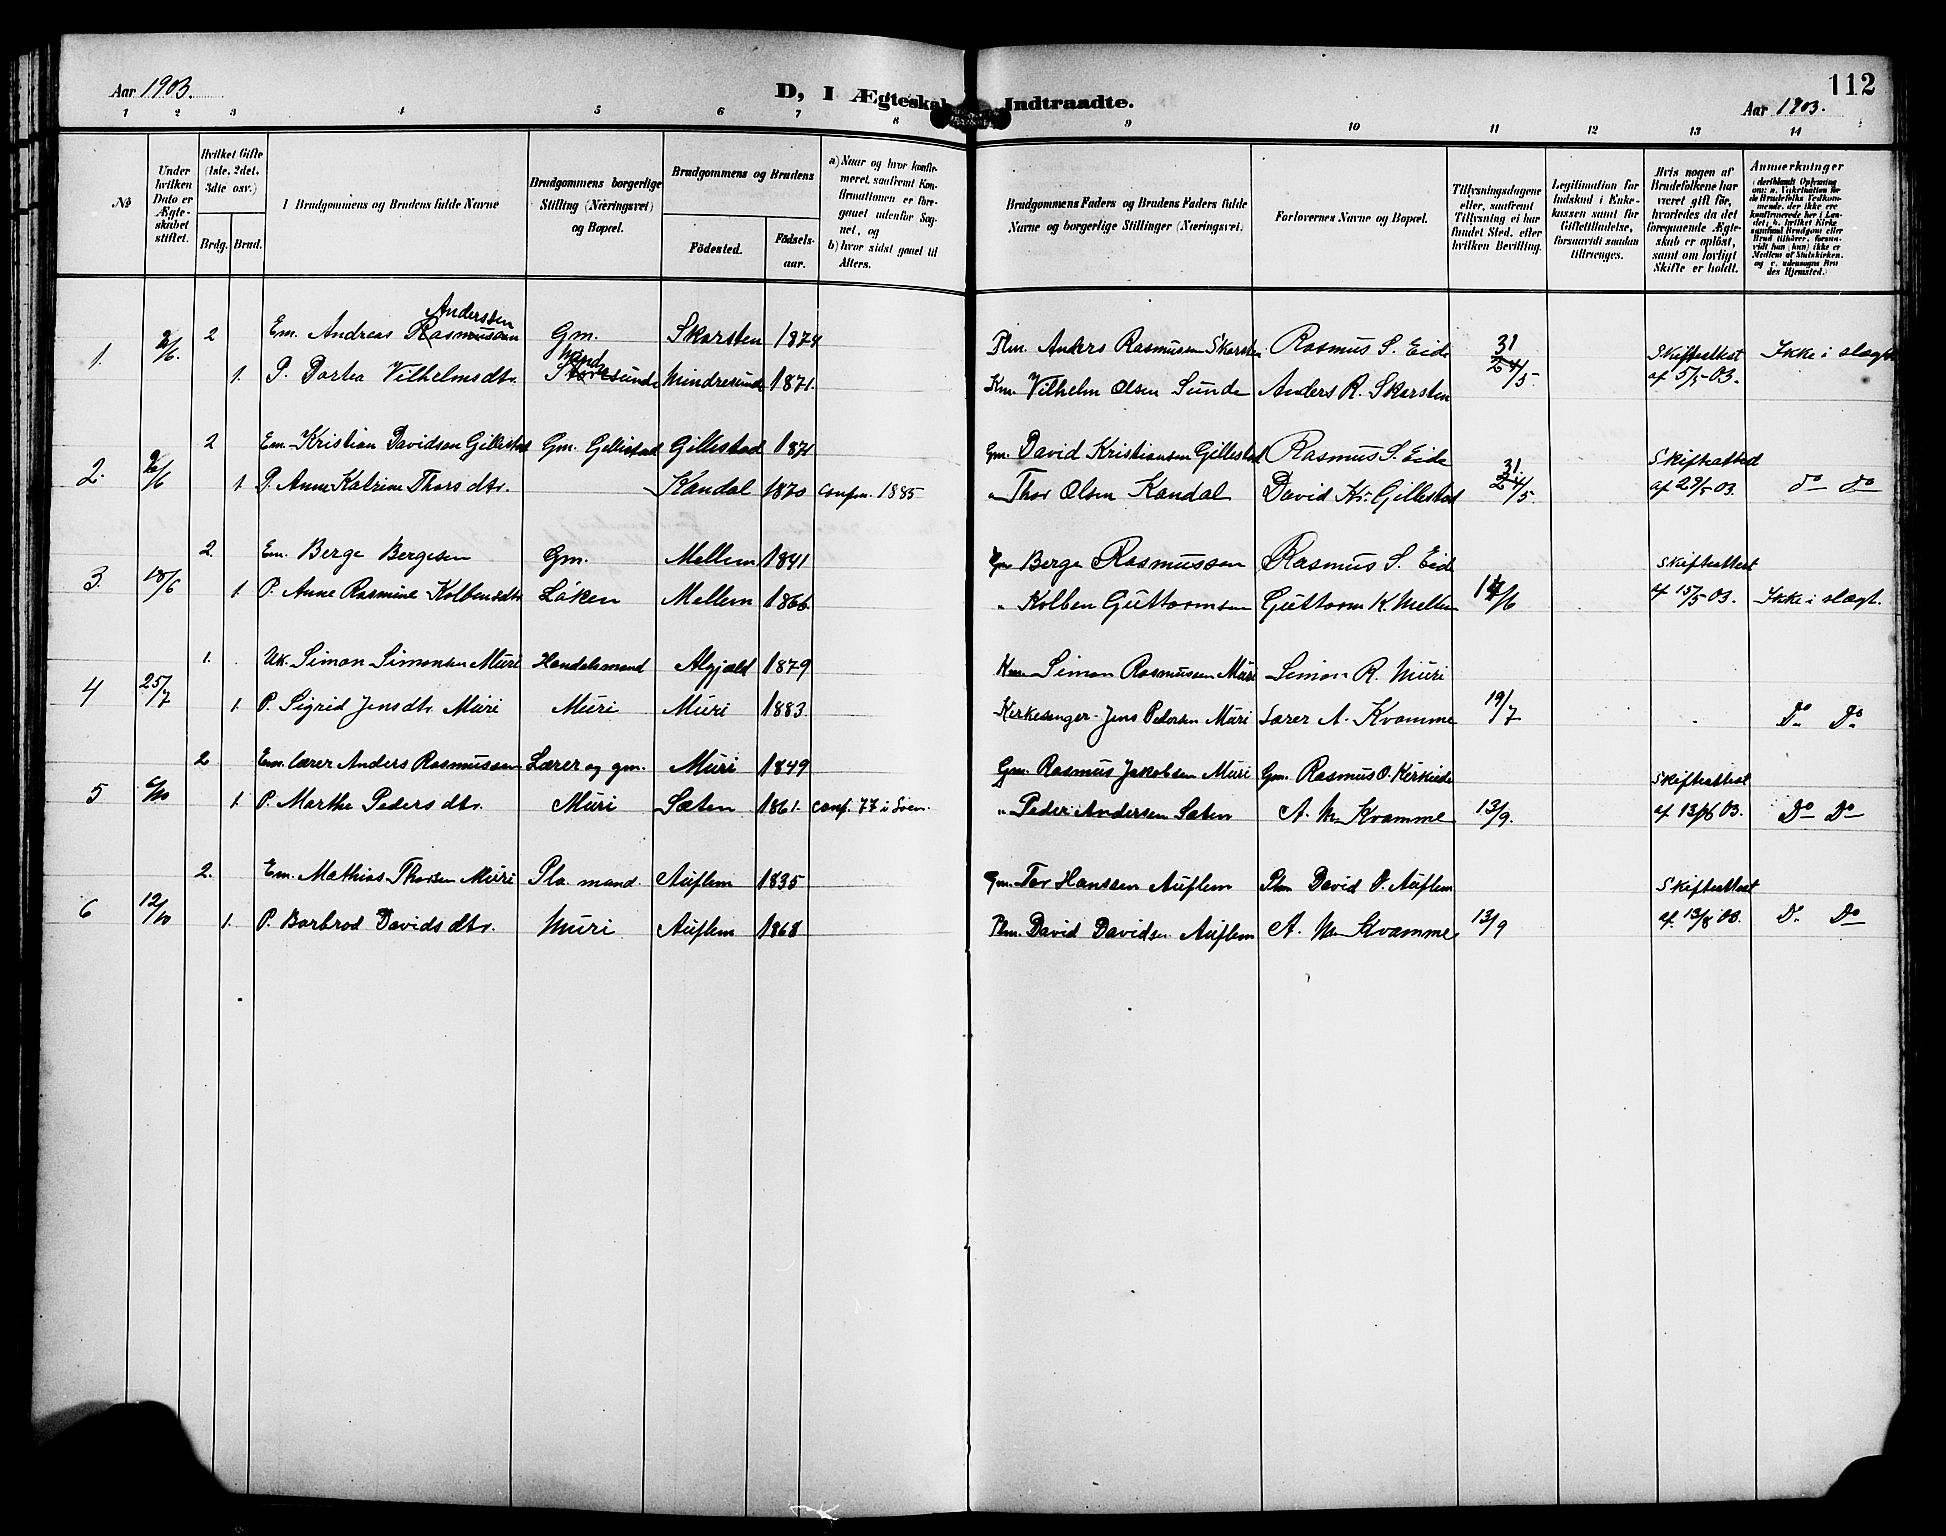 112
Aar 1903.
D, I Ægteskab Indtraadte.
Aar 1903.
1 2 3 4 5 6 7 8 9 10 11 12 13 14
No
Under hvilken Dato er Ægteskabet stiftet.
Hvilket Gifte (1ste, 2det, 3die osv.)
Brdg. Brud.
Brudgommens og Brudens fulde Navne
Brudgommens borgerlige Stilling (Næringsvei) og Bopæl.
Brudgommens og Brudens
Födested. Födselsaar.
a) Naar og hvor konfirmeret, saafremt Konfirmationen er foregaaet udenfor Sognet, og
b) hvor sidst gaaet til Alters.
Brudgommens Faders og Brudens Faders fulde Navne og borgerlige Stillinger (Næringsvei.
Forlovernes Navne og Bopæl.
Tillysningsdagene eller, saafremt Tillysning ei har fundet Sted, efter hvilken Bevilling.
Legitimation for Indskud i Enkekassen samt for Giftetilladelse, forsaavidt saadan tiltrænges.
Hvis nogen af Brudefolkene har været gift før, hvorledes da det foregaaende Ægteskab er opløst, samt om lovligt Skifte er holdt.
Anmærkninger
1. 2/6. 2 Em. Andreas Rasmussen Andersten Gm. Skarsten 1874 Plm. Anders Rasmussen Skarsten Rasmus S. Eide 31 Skifteattest Ikke i slægt
1. P. Dortea Vilhelmsdtr. Storesunde Mindresunde 1871. Km. Vilhelm Olsen Sunde Anders R. Skarsten 24/5. af 5/5 03.
2. 2/6 2 Em. Kristian Davidsen Gillestad Gm. Gillestad Gillestad 1871 Gm. David Kristiansen Gillestad Rasmus S. Eide 31. Skifteattest
1. P. Anne Katrine Thorsdtr. Kandal 1870 Confm. 1885 " Thor Olsen Kandal David Kr. Gillestad 24/5. af 29/5 03. do do
3. 18/6 2. Em. Berge Bergesen Gm. Mellem 1841 Gm Berge Rasmussen Rasmus S. Eide Skifteattest
1. P. Anne Rasmine Kolbensdtr Løken Mellem 1866. " Kolben Guttormsen Guttorm K. Mellem 14/6 af 15/5 03. Ikke i slægt.
4 25/7 1. Uk. Simon Simonsen Muri Handelsmand 1879 Km. Simon Rasmussen Muri Simon R. Muri
1. P. Sigrid Jensdtr. Muri Muri Muri 1883. Kirkesanger Jens Pedersen Muri Lærer A. Kvamme 19/7 Do Do
5 6/10 2 Em. lærer Anders Rasmussen Lærer og gm. Muri 1849 Gm. Rasmus Jakobsen Muri Gm. Rasmus O. Kirkeide Skifteattest
1. P. Marthe Pedersdtr. Muri Sæten 1861. Conf. 77 i " Peder Andersen Sæten A. M. Kvamme 13/9. af 13/8 03. Do Do
6 12/10 2. Em. Mathias Thorsen Muri Pla. mand. Auflem 1835 Gm. Tor Hanssen Auflem Plm David D. Auflem Skifteattest
1. P. Barbrod Davidsdtr. Muri Auflem 1868 Plm. David Davidsen Auflem A. M. Kvamme 13/9 af. 13/8 03. Do Do